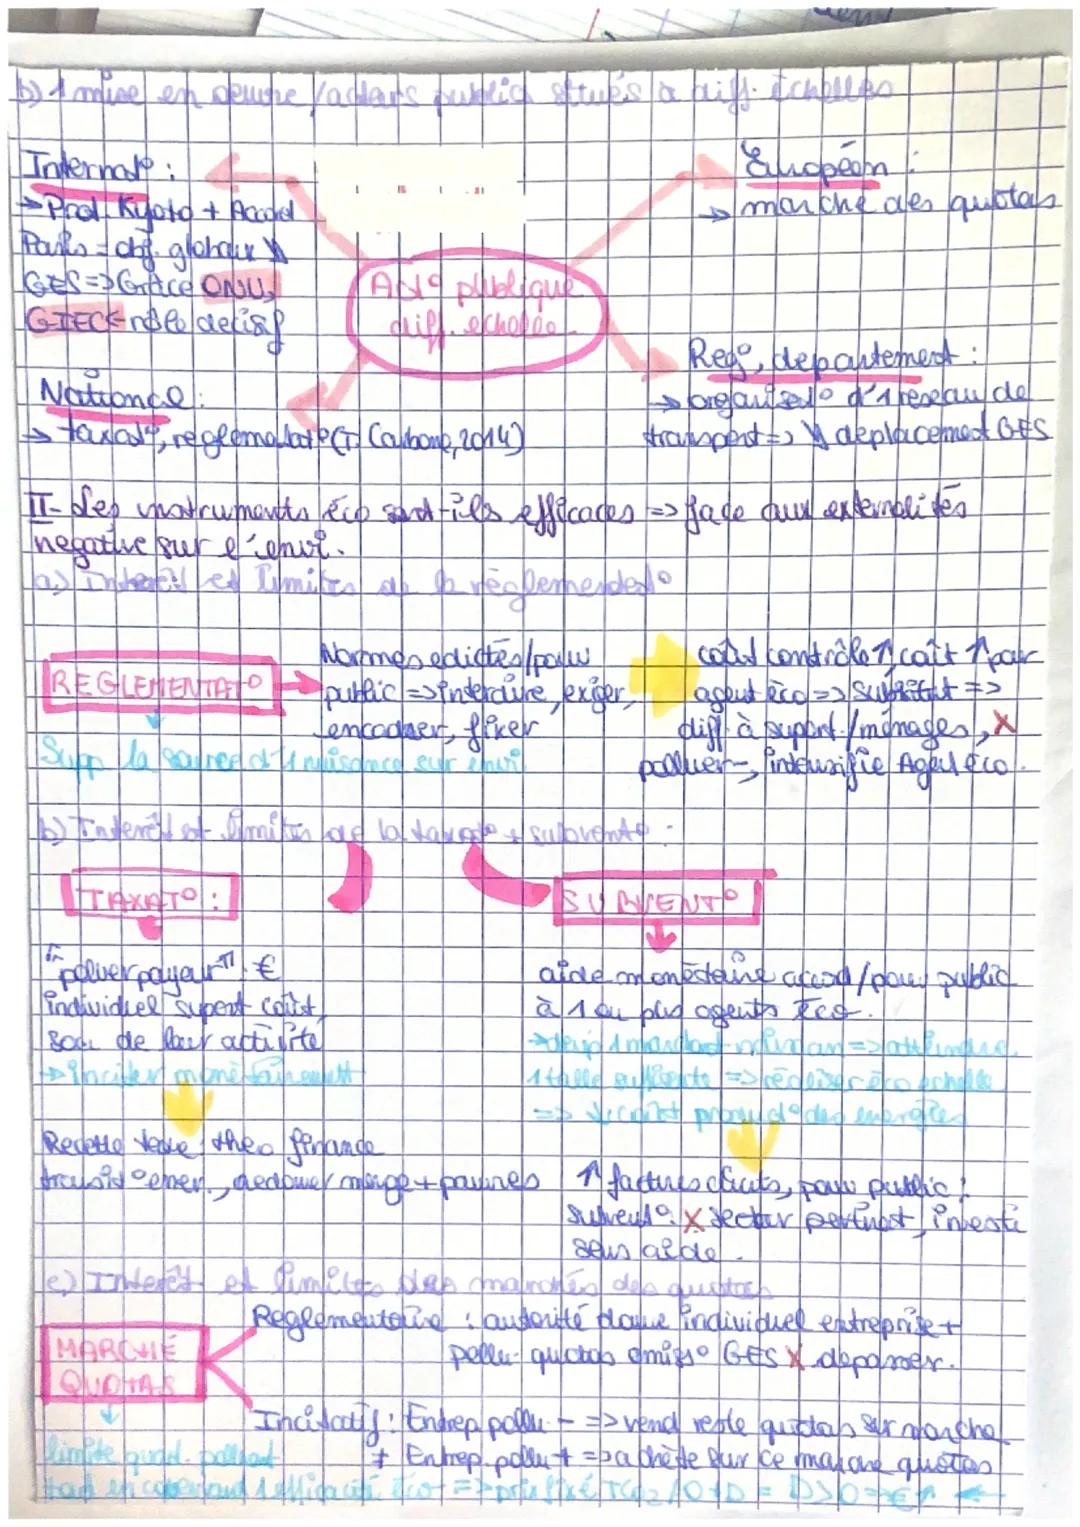 b) 1 mise en oeuvre / acteurs publics situés à diff. échelles
Internat° :
→ Prot. Kyoto + Accord
Paris = obj. globaux ↘
GES => Grâce ONU,
GIEC = rôle décisif
Européen :
→ marché des quotas
Act° publique
diff. echelle
Reg°, departement :
→ organisat° d'1 reseau de
transport => ↘ deplacement GES
National :
→ taxat°, reglementat° (T. Carbone, 2014)
II- Les instruments éco sont-ils efficaces => face aux externalités
negative sur l'envi.
a) Interêt et limites de la règlementat°
REGLEMENTAT°
Normes edictés / pouv
public => interdire, exiger,
encadrer, fixer
coût contrôle ↑, coût ↑ par
agent éco => =>
diff. à support. / ménages, X
polluer -, intensifie Agent éco.
Supp la source d'1 nuisance sur envi
b) Interêt et limites de la taxat° + subvent° :
TAXAT° :
SUBVENT°
"polluer payeur" . €
individuel suport coûts
soc. de leur activité
→ inciter monétairement
aide monétaire accord / pouv public
à 1 ou plus agents éco.
=> atteindre
1 taille suffisante => réaliser éco echelle
=> ↓ coût product° des energies
Recette taxe : theo finance
transit° ener., redonner menage + pauvres
↑ factures clients, pouv public :
subvent° X secteur pertinent, investi
sans aide.
c) Interêt et limites des marchés des quotas
MARCHÉ
QUOTAS
Reglementaire : autorité donne individuel entreprise +
pollu - quotas émiss° GES X depasser.
Incitatif : Entrep. pollu - => vend reste quotas sur marché
≠ Entrep. pollu + => achète sur ce marché quotas
limite quant. polluant
tout en efficacité éco => prix fixé TCO2 / O+D = D>O => € ↑